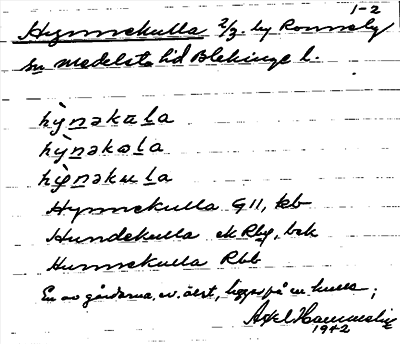 1-2
Hynnekulla 2/3. by Ronneby
sn Medelsta hd Blekinge l.
hỳnəkula
hỳnəkəla
hỳnəkula
Hynnekulla G11, kb
Hundekulla ek Rbg, bek
Hunnekulla Rbb
En av gårdarna, ev. äldst, ligger på en kulle;
Axel
1942